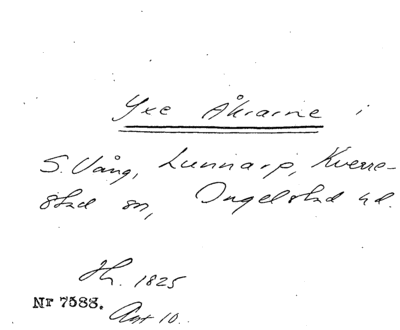 Yxe Åkrarne i
S. Vång, Lunnarp, Kverre-
stad sn, Ingelstad hd.
Hh. 1825
Nr 7588.
Akt 10.